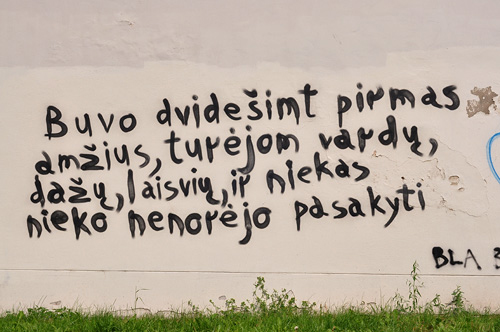 Buvo dvidešimt pirmas
amžius, turėjom vardų,
dažų, laisvių, ir niekas
nieko nenorėjo pasakyti
BLA